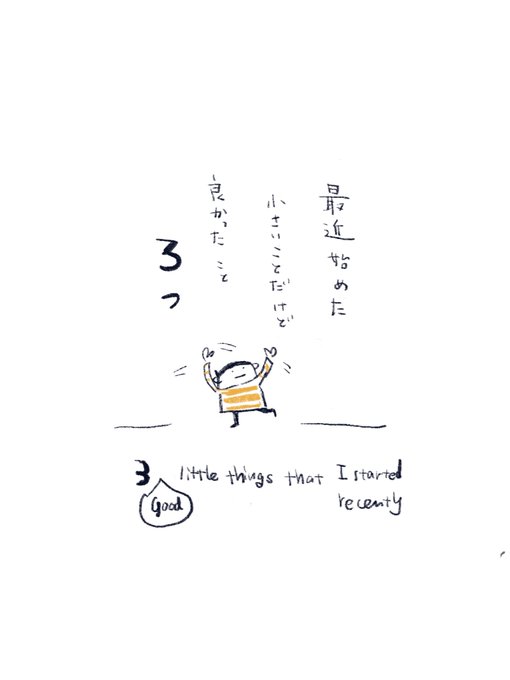 最近始めた
小さいことだけど
良かったこと
3つ
3 little things that I started
Good
recently